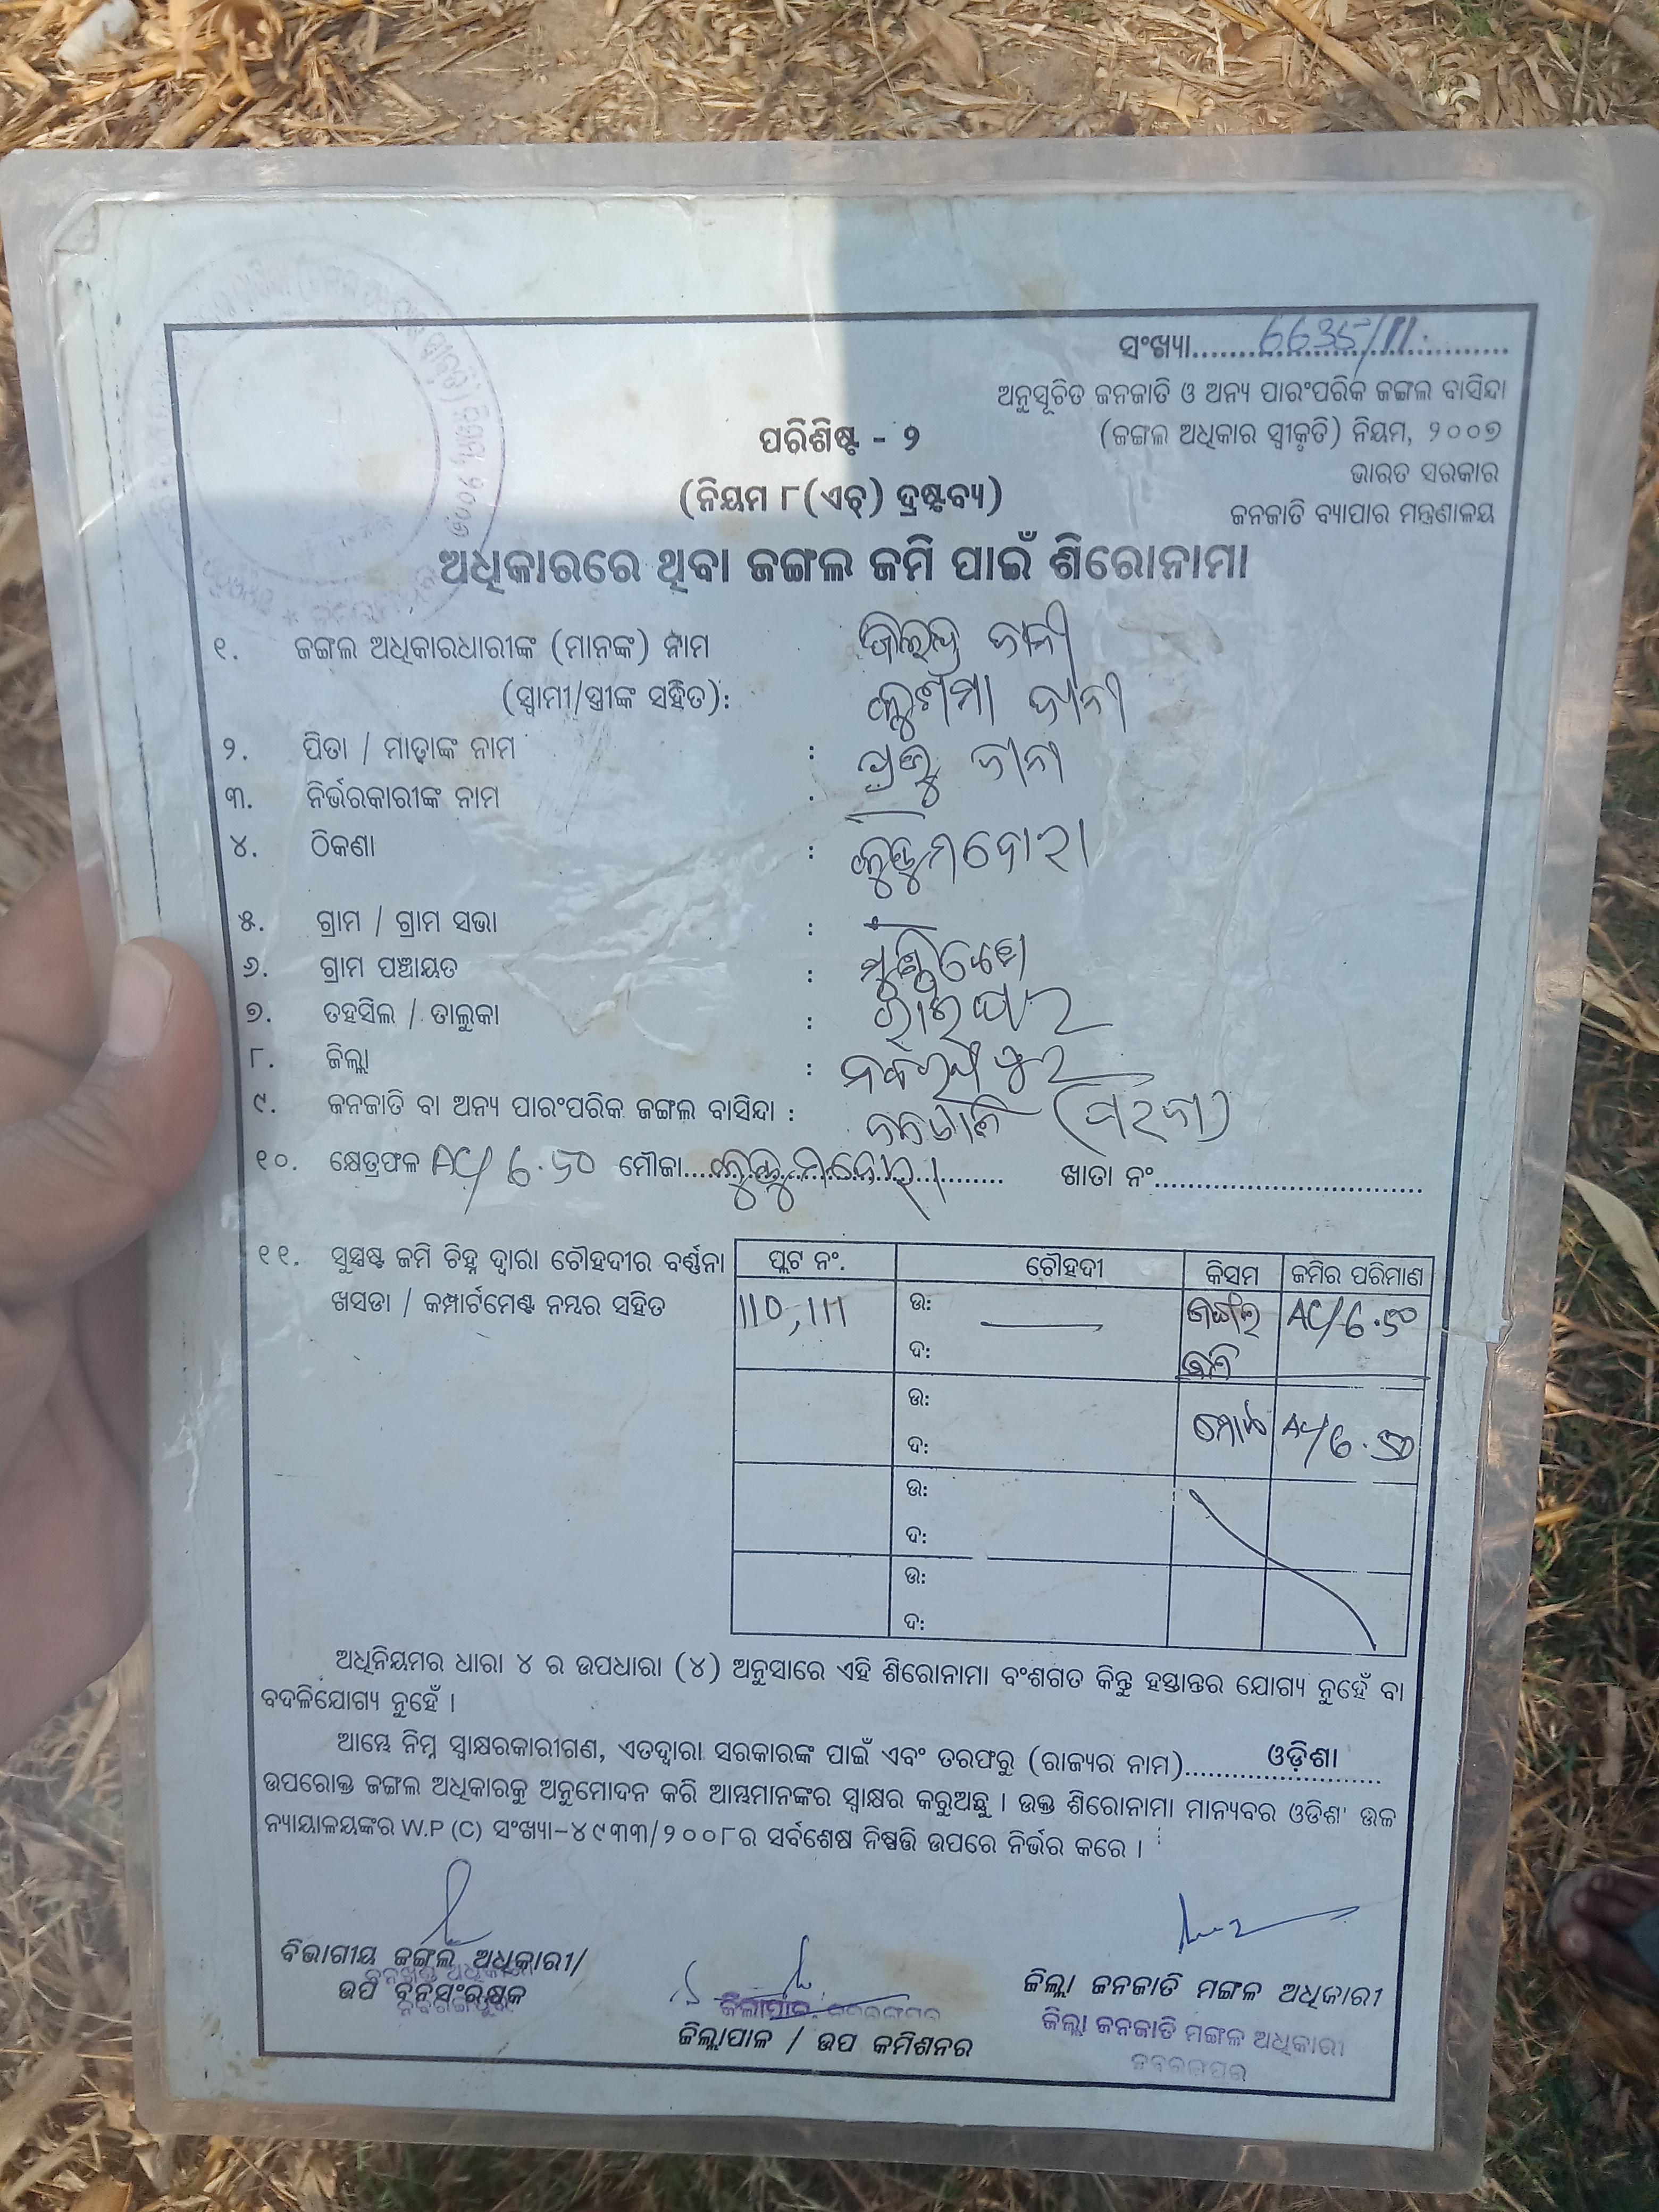 ସଂଖ୍ୟା..............................
ଅନୁସୂଚିତ ଜନଜାତି ଓ ଅନ୍ୟ ପାରଂପରିକ ଜଙ୍ଗଲ ବାସିନ୍ଦା
(ଜଙ୍ଗଲ ଅଧିକାର ସ୍ୱୀକୃତି) ନିୟମ, ୨୦୦୭
ଭାରତ ସରକାର
ଜନଜାତି ବ୍ୟାପାର ମନ୍ତ୍ରଣାଳୟ
ପରିଶିଷ୍ଟ - ୨
(ନିୟମ ୮(ଏଚ୍) ଦ୍ରଷ୍ଟବ୍ୟ)
ଅଧିକାରରେ ଥିବା ଜଙ୍ଗଲ ଜମି ପାଇଁ ଶିରୋନାମା
୧. ଜଙ୍ଗଲ ଅଧିକାରଧାରୀଙ୍କ (ମାନଙ୍କ) ନାମ
(ସ୍ୱାମୀ/ସ୍ତ୍ରୀଙ୍କ ସହିତ):
୨. ପିତା / ମାତାଙ୍କ ନାମ :
୩. ନିର୍ଭରକାରୀଙ୍କ ନାମ :
୪. ଠିକଣା :
୫. ଗ୍ରାମ / ଗ୍ରାମ ସଭା :
୬. ଗ୍ରାମ ପଞ୍ଚାୟତ :
୭. ତହସିଲ / ତାଲୁକା : ରାଇଘର
୮. ଜିଲ୍ଲା : ନବରଙ୍ଗପୁର
୯. ଜନଜାତି ବା ଅନ୍ୟ ପାରଂପରିକ ଜଙ୍ଗଲ ବାସିନ୍ଦା : ଜନଜାତି
୧୦. କ୍ଷେତ୍ରଫଳ AC/ 6.50 ମୌଜା.............................. ଖାତା ନଂ..............................
୧୧. ସୁସ୍ପଷ୍ଟ ଜମି ଚିହ୍ନ ଦ୍ୱାରା ଚୌହଦୀର ବର୍ଣ୍ଣନା
ଖସଡା / କମ୍ପାର୍ଟମେଣ୍ଟ ନମ୍ବର ସହିତ
ପ୍ଲଟ ନଂ. ଚୌହଦୀ କିସମ ଜମିର ପରିମାଣ
110,111 ଉ: ଜଙ୍ଗଲ AC/6.50
ଦ: ଜମି
ଉ: ମୋଟ AC/6.50
ଦ:
ଉ:
ଦ:
ଉ:
ଦ:
ଅଧିନିୟମର ଧାରା ୪ ର ଉପଧାରା (୪) ଅନୁସାରେ ଏହି ଶିରୋନାମା ବଂଶଗତ କିନ୍ତୁ ହସ୍ତାନ୍ତର ଯୋଗ୍ୟ ନୁହେଁ ବା
ବଦଳିଯୋଗ୍ୟ ନୁହେଁ ।
ଆମ୍ଭେ ନିମ୍ନ ସ୍ୱାକ୍ଷରକାରୀଗଣ, ଏତଦ୍ୱାରା ସରକାରଙ୍କ ପାଇଁ ଏବଂ ତରଫରୁ (ରାଜ୍ୟର ନାମ)......ଓଡ଼ିଶା......
ଉପରୋକ୍ତ ଜଙ୍ଗଲ ଅଧିକାରକୁ ଅନୁମୋଦନ କରି ଆମ୍ଭମାନଙ୍କର ସ୍ୱାକ୍ଷର କରୁଅଛୁ । ଉକ୍ତ ଶିରୋନାମା ମାନ୍ୟବର ଓଡିଶା ଉଚ୍ଚ
ନ୍ୟାୟାଳୟଙ୍କର W.P (C) ସଂଖ୍ୟା-୪୯୩୩/୨୦୦୮ର ସର୍ବଶେଷ ନିଷ୍ପତ୍ତି ଉପରେ ନିର୍ଭର କରେ ।
ବିଭାଗୀୟ ଜଙ୍ଗଲ ଅଧିକାରୀ/
ଉପ ବନସଂରକ୍ଷକ
ଜିଲ୍ଲାପାଳ, ନବରଙ୍ଗପୁର
ଜିଲ୍ଲାପାଳ / ଉପ କମିଶନର
ଜିଲ୍ଲା ଜନଜାତି ମଙ୍ଗଳ ଅଧିକାରୀ
ଜିଲ୍ଲା ଜନଜାତି ମଙ୍ଗଳ ଅଧିକାରୀ
ନବରଙ୍ଗପୁର